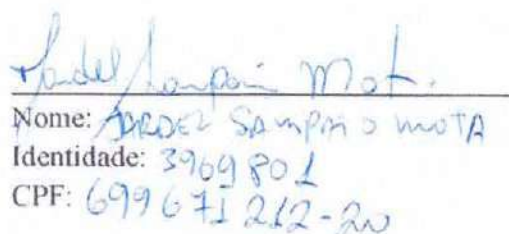 Jardel Sampaio Mota.
Nome: JARDEL SAMPAIO MOTA
Identidade: 3969801
CPF: 699671212-20